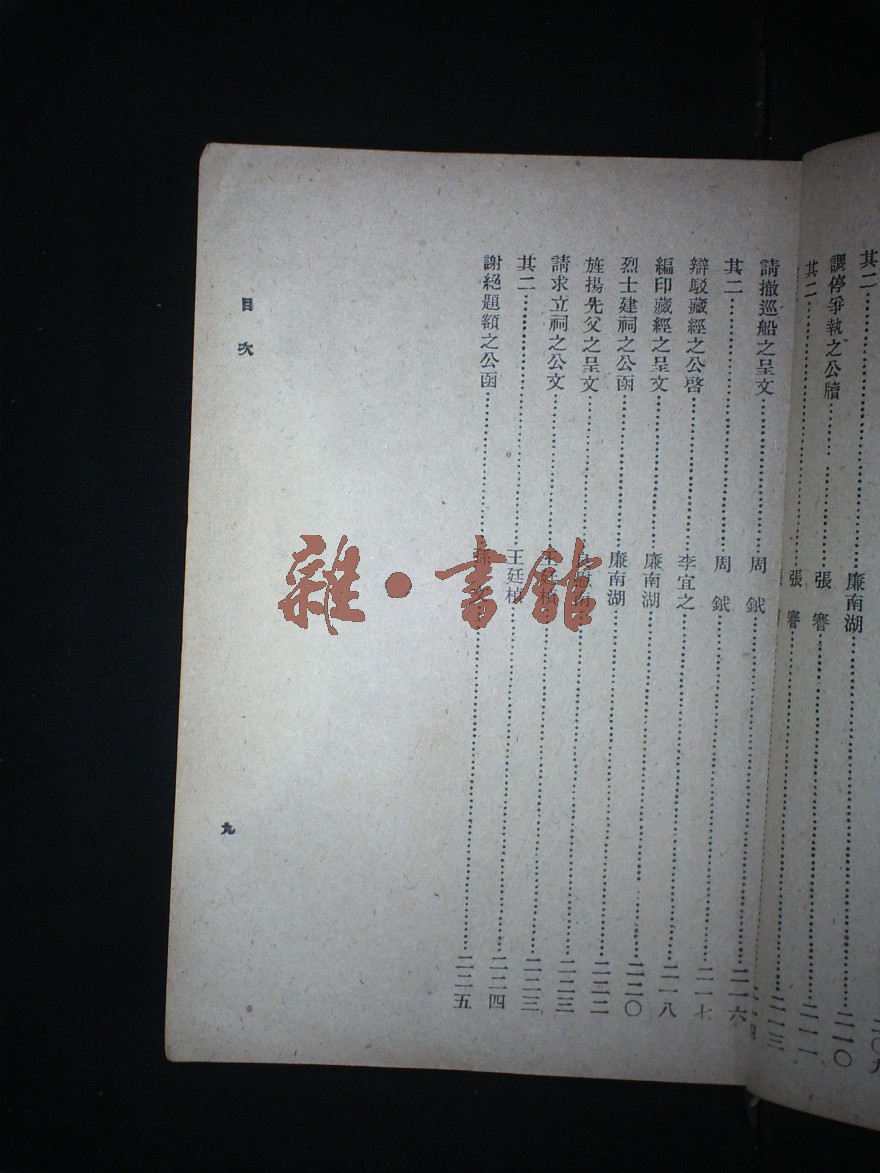 其二……廉南湖……二一〇
調停爭執之公牘……張 謇……
其二……張 謇……二一三
請撤巡船之呈文……周 鉞……二一六
其二……周 鉞……二一七
辯駁藏經之公啓……李宜之……二一八
編印藏經之呈文……廉南湖……二二〇
烈士建祠之公函……廉南湖……二二二
旌揚先父之呈文……二二三
請求立祠之公文……二二三
其二……王廷楨……二二四
謝絕題額之公函……二二五
目次
九
雜·書館